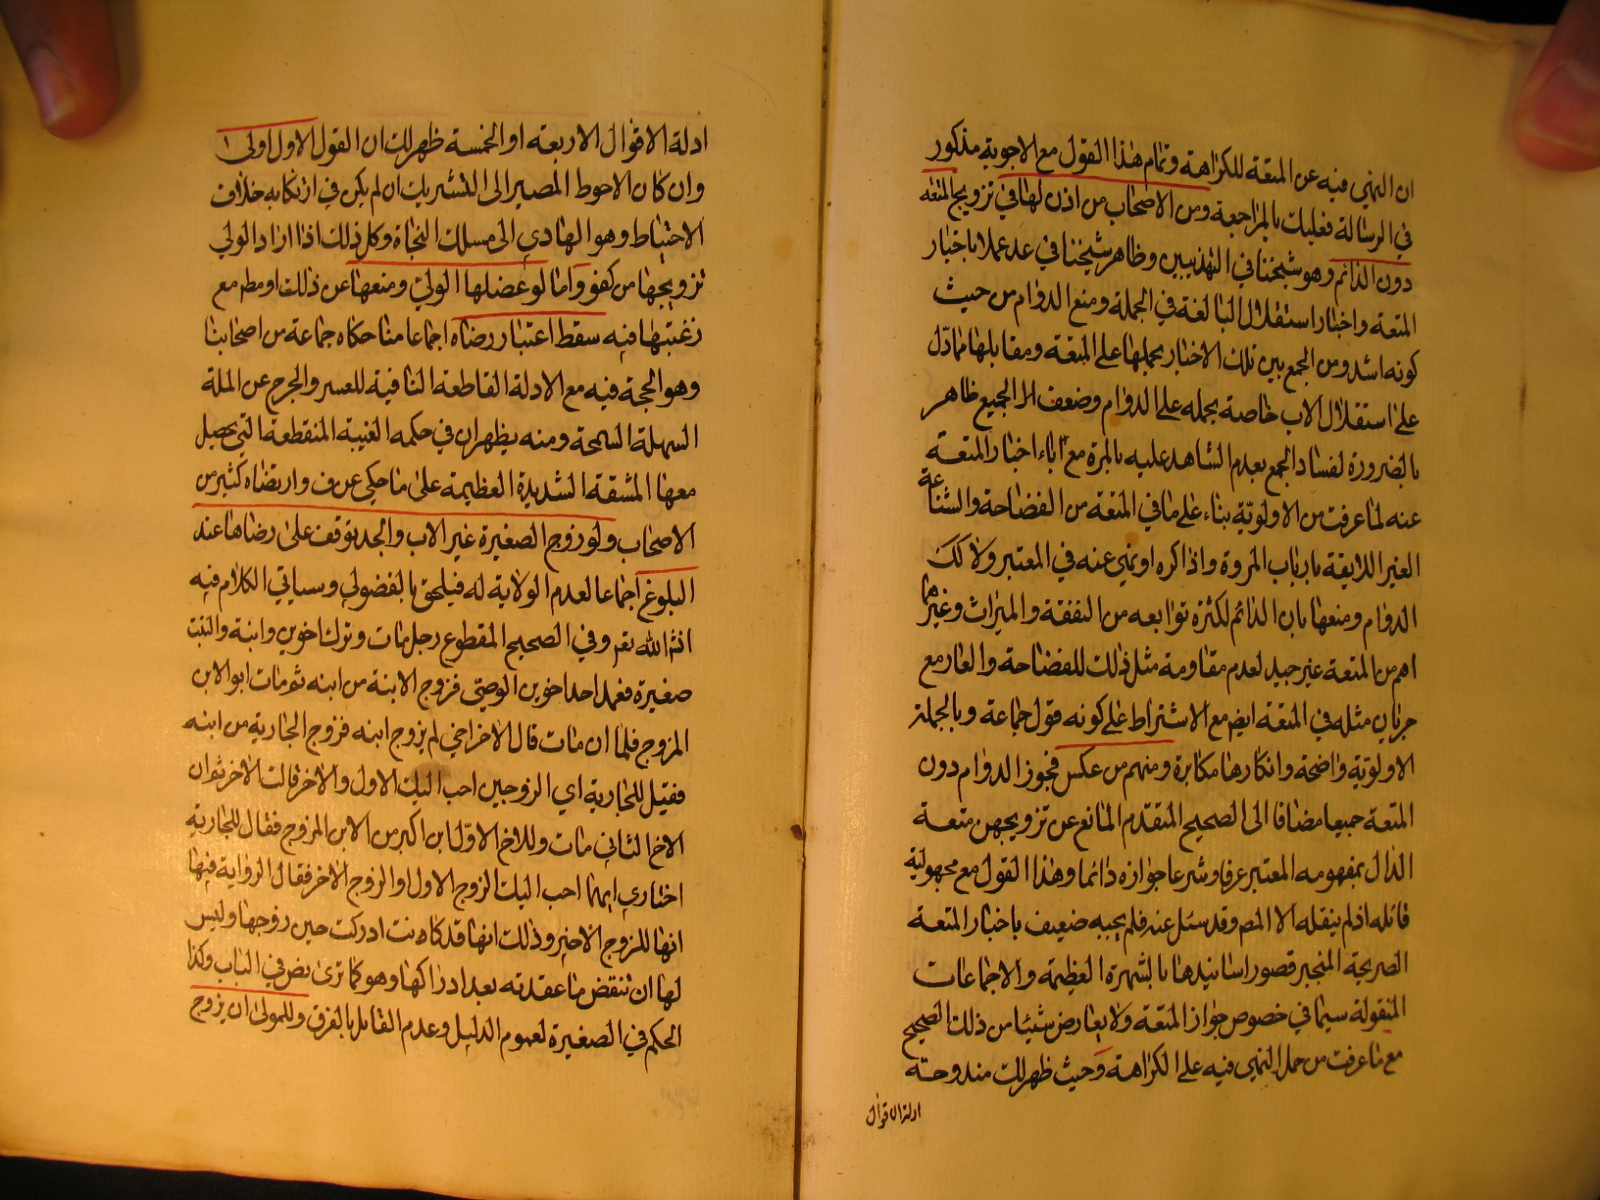 ان النهي فيه عن المتعة للكراهة وتمام هذا القول مع الاجوبة مذكور
في الرسالة فعليك بالمراجعة ومن الاصحاب من اذن لها في تزويج المتعة
دون الدائم وهو شيخنا في التهذيبين وظاهر شيخنا في عد عملا باخبار
المتعة واخبار استقلال البالغة في الجملة ومنع الدوام من حيث
كونه اشد ومن الجمع بين تلك الاخبار بحملها على المتعة ومقابلها مما دل
على استقلال الاب خاصة بحمله على الدوام وضعف الجميع ظاهر
بالضرورة لفساد الجمع بعدم الشاهد عليه بالمرة مع اباء اخبار المتعة
عنه لما عرفت من الاولوية بناء على ما في المتعة من الفضاحة والشناعة
الغير اللايقة بارباب المروة ولذا كره او نهي عنه في المعتبر ولا كك
الدوام ومنعها بان الدائم لكثرة توابعه من النفقة والميراث وغيرهما
اهم من المتعة غير جيد لعدم مقاومة مثل ذلك للفضاحة والعار مع
جريان مثله في المتعة ايض مع الاشتراط على كونه قول جماعة وبالجملة
الاولوية واضحة وانكارها مكابرة ومنهم من عكس فجوز الدوام دون
المتعة جميعا مضافا الى الصحيح المتقدم المانع عن تزويجهن متعة
الدال بمفهومه المعتبر عرفا وشرعا جوازه دائما وهذا القول مع مجهولية
قائله اذ لم ينقله الا المص وقد سئل عنه فلم يجبه ضعيف باخبار المتعة
الصريحة المنجبر قصور اسانيدها بالشهرة العظيمة والاجماعات
المنقولة سيما في خصوص جواز المتعة ولا يعارض شيئا من ذلك الصحيح
مع ما عرفت من حمل النهي فيه على الكراهة وحيث ظهر لك مندوحة
ادلة الاقوال
ادلة الاقوال الاربعة او الخمسة ظهر لك ان القول الاول اولى
وان كان الاحوط المصير الى التشريك ان لم يكن في ارتكابه خلاف
الاحتياط وهو الهادي الى مسلك النجاة وكل ذلك اذا اراد الولي
تزويجها من كفو واما لو عضلها الولي ومنعها عن ذلك او مطم مع
رغبتها فيه سقط اعتبار رضاه اجماعا منا حكاه جماعة من اصحابنا
وهو الحجة فيه مع الادلة القاطعة النافية للعسر والحرج عن الملة
السهلة السمحة ومنه يظهر ان في حكمه الغيبة المنقطعة التي يحصل
معها المشقة الشديدة العظيمة على ما حكي عن ف وارتضاه كثير من
الاصحاب ولو زوج الصغيرة غير الاب والجد توقف على رضاها عند
البلوغ اجماعا لعدم الولاية له فيلحق بالفضولي وسياتي الكلام فيه
انش الله تعم وفي الصحيح المقطوع رجل مات وترك اخوين وابنة والبنت
صغيرة فعمد احد اخوين الوصي فزوج الابنة من ابنه ثم مات ابو الابن
المزوج فلما ان مات قال الاخر اخي لم يزوج ابنه فزوج الجارية من ابنه
فقيل للجارية اي الزوجين احب اليك الاول والاخر قالت الاخر ثم ان
الاخ الثاني مات وللاخ الاول ابن اكبر من الابن المزوج فقال للجارية
اختاري ايهما احب اليك الزوج الاول والزوج الاخر فقال الرواية فيها
انها للزوج الاخير وذلك انها قد كانت ادركت حين زوجها وليس
لها ان تنقض ما عقدته بعد ادراكها وهو كما ترى نص في الباب وكذا
الحكم في الصغيرة لعموم الدليل وعدم القائل بالفرق وللمولى ان يزوج